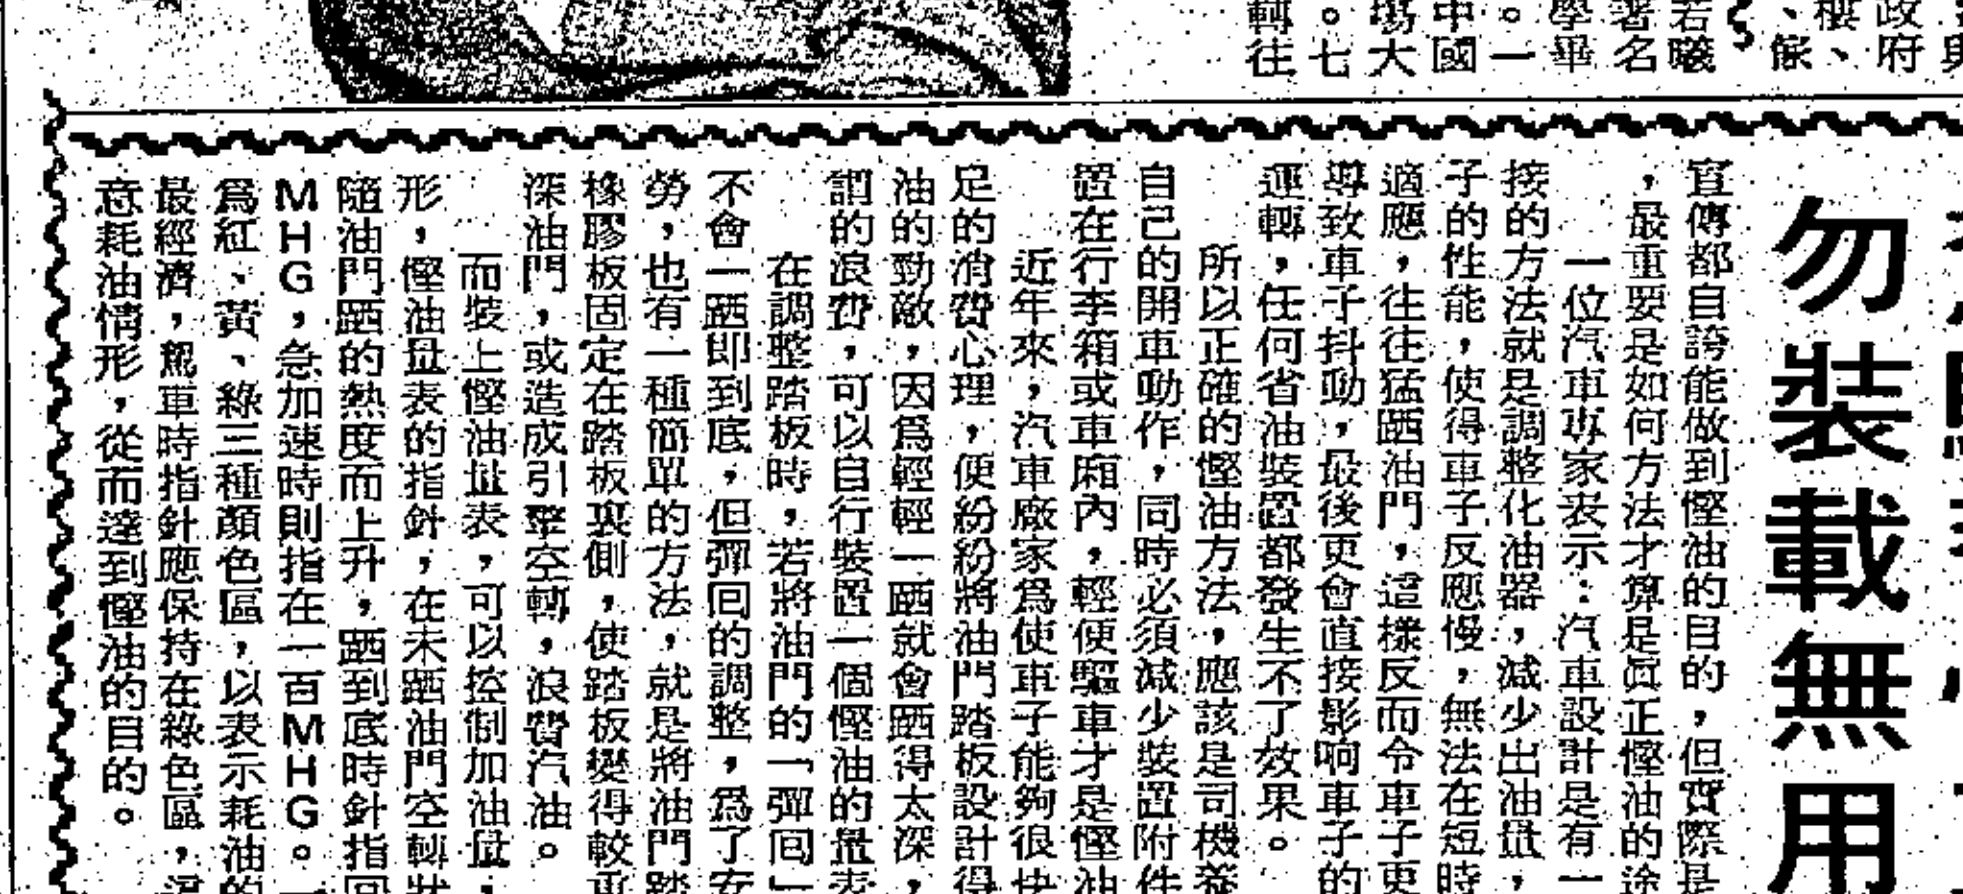 勿裝載無用
宣傳都自誇能做到慳油的目的，但實際是
，最重要是如何方法才算是眞正慳油的途
一位汽車專家表示：汽車設計是有一
接的方法就是調整化油器，減少出油量，
子的性能，使得車子反應慢，無法在短時
適應，往往猛跴油門，這樣反而令車子更
導致車子抖動，最後更會直接影响車子的
運轉，任何省油裝置都發生不了效果。
所以正確的慳油方法，應該是司機養
自己的開車動作，同時必須減少裝置附件
置在行李箱或車廂內，輕便驅車才是慳油
近年來，汽車廠家爲使車子能夠很快
足的消費心理，便紛紛將油門踏板設計得
油的勁敵，因爲輕輕一跴就會跴得太深，
謂的浪費，可以自行裝置一個慳油的量表
在調整踏板時，若將油門的「彈囘」
不會一跴即到底，但彈囘的調整，爲了安
勞，也有一種簡單的方法，就是將油門踏
橡膠板固定在踏板裏側，使踏板變得較重
深油門，或造成引擎空轉，浪費汽油。
而裝上慳油量表，可以控制加油量，
形，慳油量表的指針，在未跴油門空轉狀
隨油門跴的熱度而上升，跴到底時針指囘
ＭＨＧ，急加速時則指在一百ＭＨＧ。一
爲紅、黃、綠三種顏色區，以表示耗油的
最經濟，駕車時指針應保持在綠色區，
意耗油情形，從而達到慳油的目的。